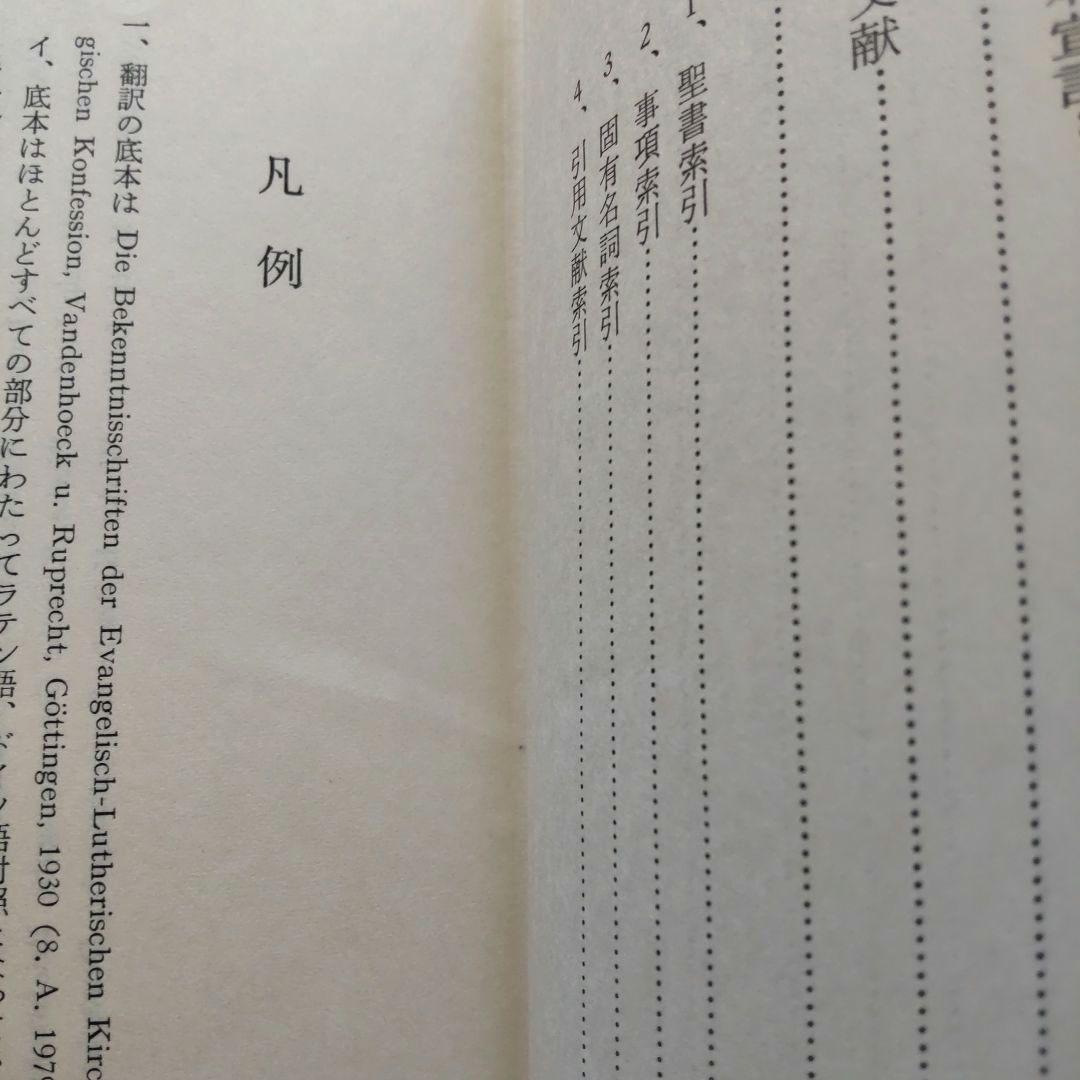 文献
1、聖書索引
2、事項索引
3、固有名詞索引
4、引用文献索引
凡例
1、翻訳の底本は Die Bekenntnisschriften der Evangelisch-Lutherischen
gischen Konfession, Vandenhoeck u. Ruprecht, Göttingen, 1930 (8. A.
イ、底本はほとんどすべての部分にわたってラテン語、